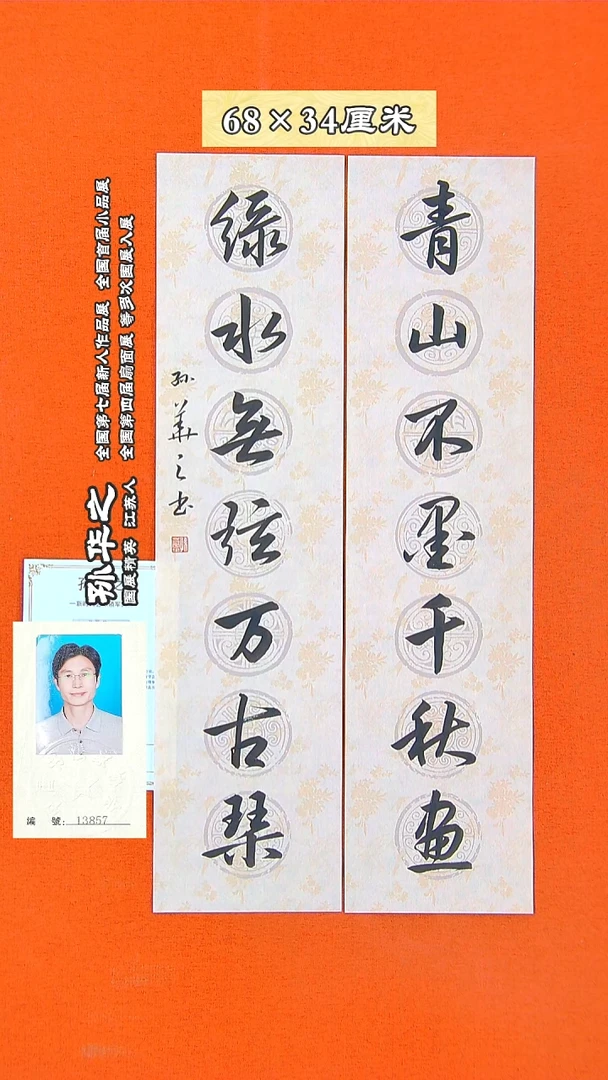 68×34厘米
青山不墨千秋畫
緑水無弦万古琴
孙華之书
孙华之
國展精英 江苏人
全國第七届新人作品展 全國首届小品展
全國第四届扇面展 等多次國展入展
编 號: 13857